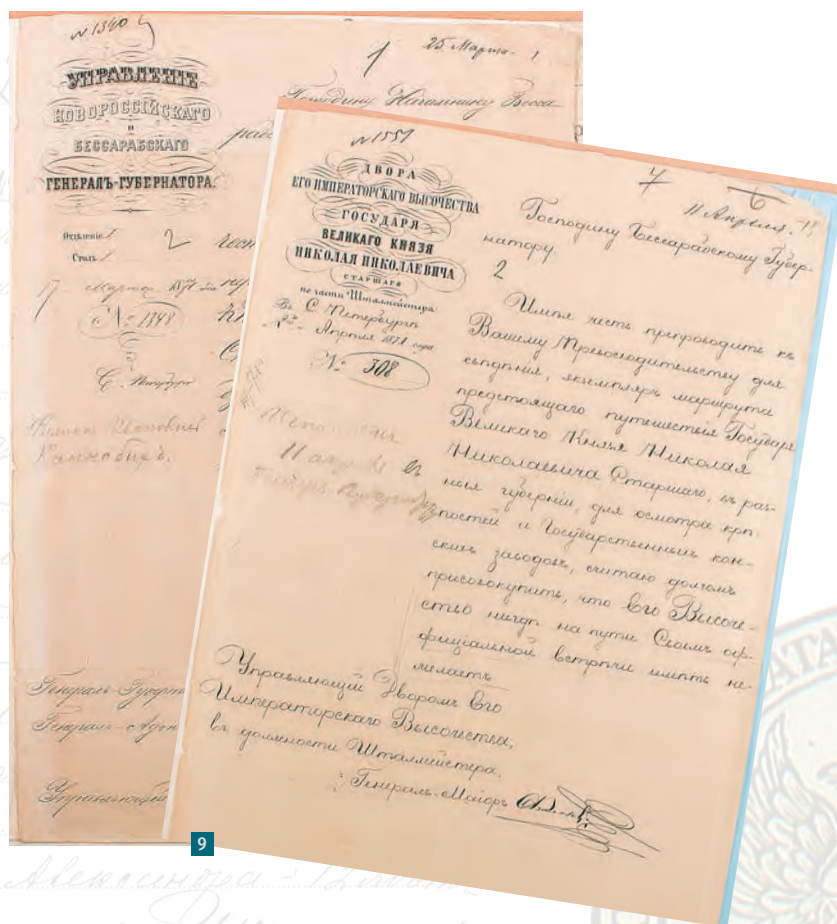 № 1340
25 Марта
УПРАВЛЕНІЕ
НОВОРОССІЙСКАГО
И
БЕССАРАБСКАГО
ГЕНЕРАЛЪ-ГУБЕРНАТОРА.
Господину Начальнику Бесса
Отдѣленіе 1
2
Столъ 1
17 Марта 1871
№ 1348
С. Петербургъ
Генералъ-Губерн
Генералъ-Адъю
Управляющій
№ 1551
ДВОРА
ЕГО ИМПЕРАТОРСКАГО ВЫСОЧЕСТВА
ГОСУДАРЯ
ВЕЛИКАГО КНЯЗЯ
НИКОЛАЯ НИКОЛАЕВИЧА
СТАРШАГО
по части Шталмейстера
Въ С. Петербургѣ
Апрѣля 1871 года
№ 308
11 Апрѣля
Господину Бессарабскому Губер-
натору.
2
Имѣя честь препроводить къ
Вашему Превосходительству для
свѣдѣнія, экземпляръ маршрута
предстоящаго путешествія Государя
Великаго Князя Николая
Николаевича Старшаго, въ раз-
ныя губерніи, для осмотра крѣ-
постей и Государственныхъ кон-
скихъ заводовъ, считаю долгомъ
присовокупить, что Его Высоче-
ство нигдѣ на пути Своемъ оф-
фиціальной встрѣчи имѣть не-
желаетъ
Управляющій Дворомъ Его
Императорскаго Высочества,
въ должности Шталмейстера,
Генералъ-Маіоръ
9